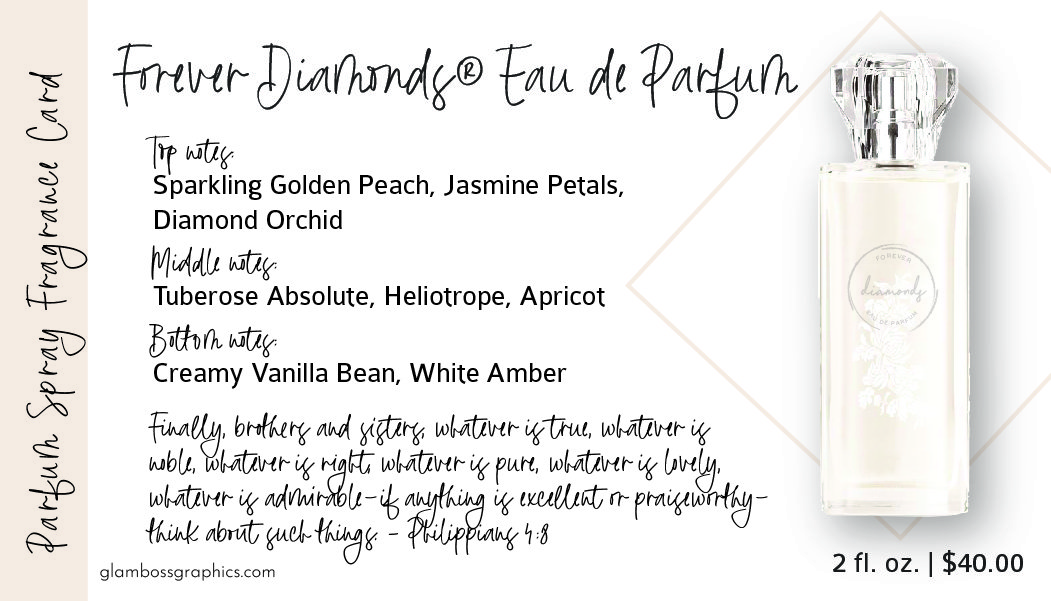 Parfum Spray Fragrance Card
Forever Diamonds® Eau de Parfum
Top notes:
Sparkling Golden Peach, Jasmine Petals,
Diamond Orchid
Middle notes:
Tuberose Absolute, Heliotrope, Apricot
Bottom notes:
Creamy Vanilla Bean, White Amber
Finally, brothers and sisters, whatever is true, whatever is
noble, whatever is right, whatever is pure, whatever is lovely,
whatever is admirable–if anything is excellent or praiseworthy–
think about such things. - Philippians 4:8
glambossgraphics.com
FOREVER
diamonds
EAU DE PARFUM
2 fl. oz. | $40.00